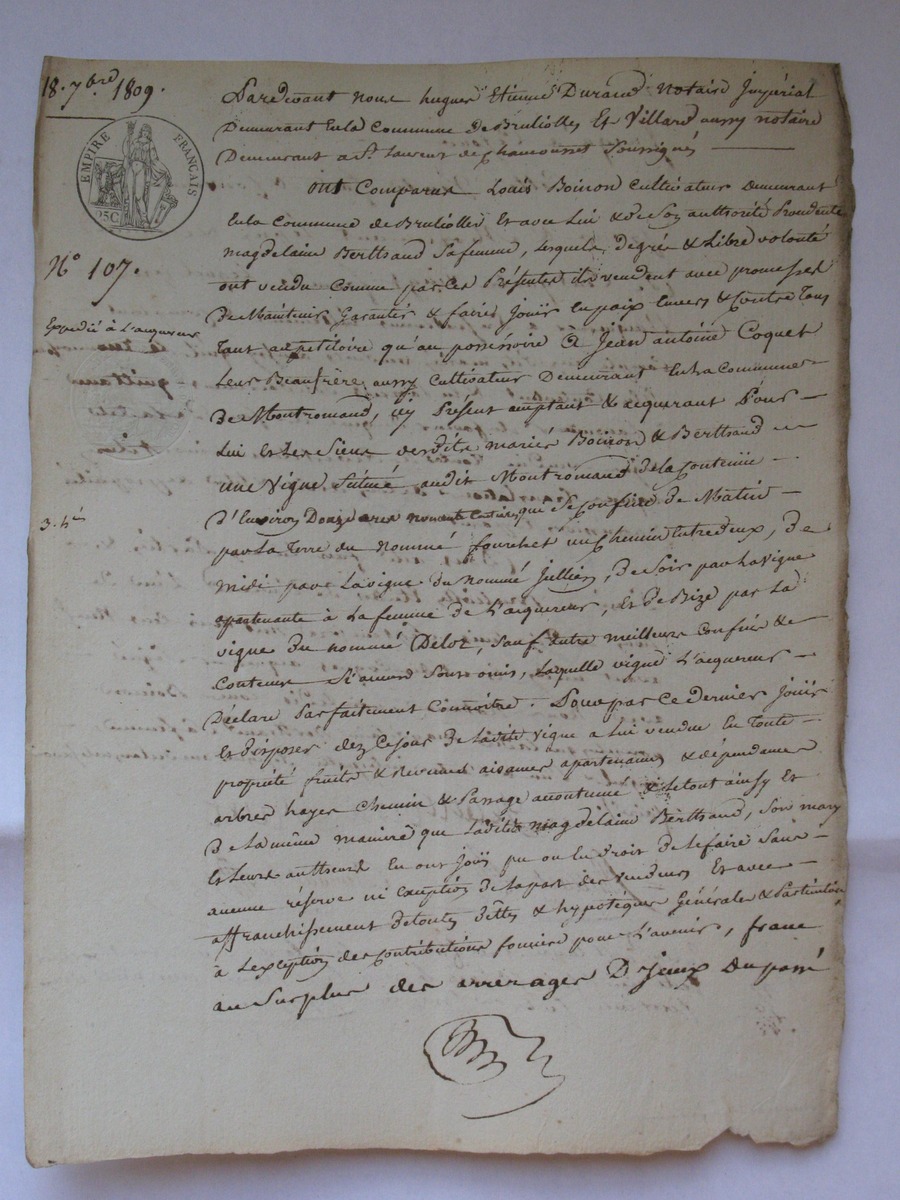 18. 7bre 1809.
EMPIRE FRANÇAIS
25C
N° 107.
Expedié à L'acquereur
Pardevant nous hugues Etienne Durand Notaire Impérial
Demeurant En la Commune de Brulioles Et Villard aussy notaire
Demeurant a St. Laurent de Chamousset Soussignés
Ont Comparus Louis Boiron Cultivateur Demeurant
En la Commune de Brulioles Et avec Lui & de Son authorité Procédente
magdelaine Berttrand Sa femme, lesquels de gré & Libre volonté
ont vendu Comme par ces Présentes ils vendent avec promesses
De Maintenir Garantir & faire Jouïr en paix Envers & Contre Tous
Tant au petitoire qu'au possessoire à Jean antoine Coquet
Leur Beaufrère aussy Cultivateur Demeurant En La Commune
De Montromand, icy Présent acceptant & acquerant Pour
Lui Et Les Siens desdits mariés Boiron & Berttrand
une Vigne Située audit Montromand de la Contenue
D'Environ Douze ares nonante Centiares qui Se Confine de Matin
par La Terre du nommé fourchet un Chemin Entredeux, de
midi par La vigne du nommé Jullien, de Soir par La Vigne
apartenante à La femme de L'acquereur, Et de Bize par La
vigne Du nommé Deloz, Sauf autre meilleurs Confins &
Contenue Si aucuns Sont omis, Laquelle vigne L'acquereur
Déclare Parfaitement Connoitre. Pour par ce Dernier Jouïr
Et disposer dez Ce Jour De Ladite Vigne a Lui vendue En Toute
propriété fruits & Revenus aisances apartenances & dépendances
arbres hayes Chemin & Passage accoutumé & Le tout ainsy Et
De La même manière que Ladite Magdelaine Berttrand, Son mary
Et Leurs autheurs En ont Joüi pu ou En droit de le faire Sans
aucune réserve ni Exception de La part des vendeurs Et avec
affranchissement de toutes dettes & hypotéques Générales & Particulières
à L'exception des Contributions foncières pour L'avenir, franc
au Surplus des arrerages D'Jceux Du passé